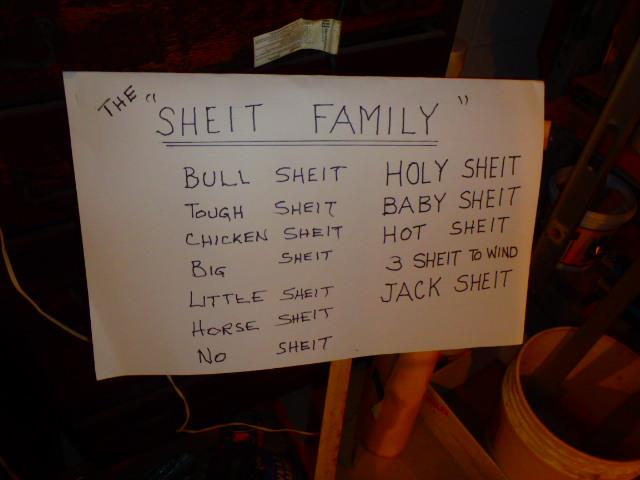 THE "SHEIT FAMILY"
BULL SHEIT
TOUGH SHEIT
CHICKEN SHEIT
BIG SHEIT
LITTLE SHEIT
HORSE SHEIT
NO SHEIT
HOLY SHEIT
BABY SHEIT
HOT SHEIT
3 SHEIT TO WIND
JACK SHEIT